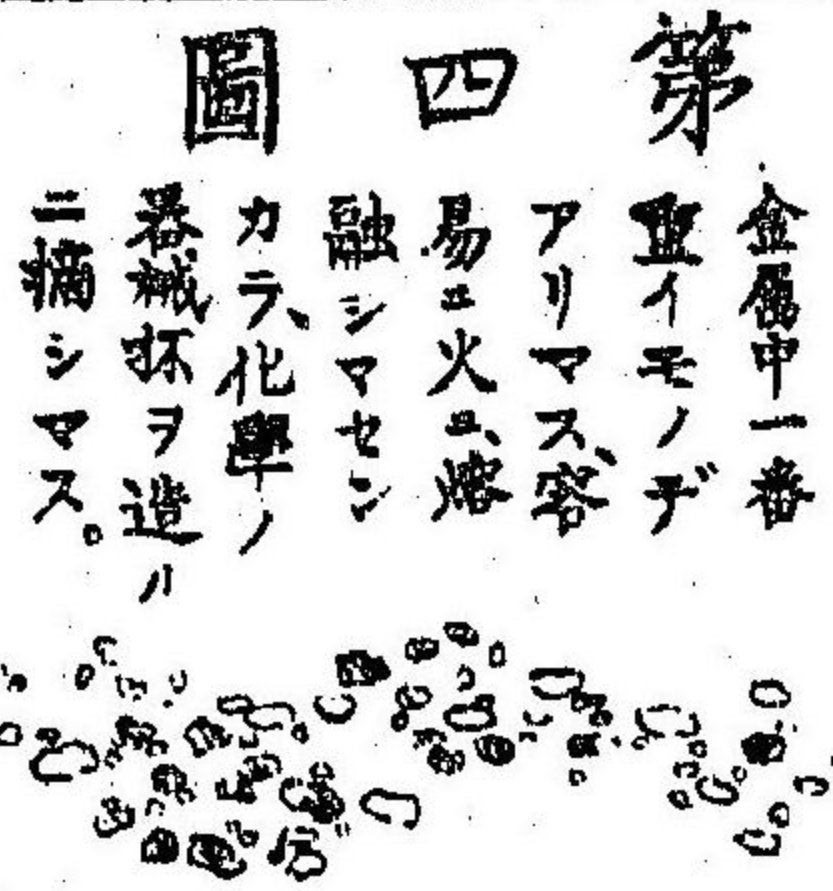 第四圖
金属中一番
重イモノデ
アリマス、容
易ニ火ニ、熔
融シマセン
カラ、化學ノ
器械抔ヲ造ル
ニ摘シマス。